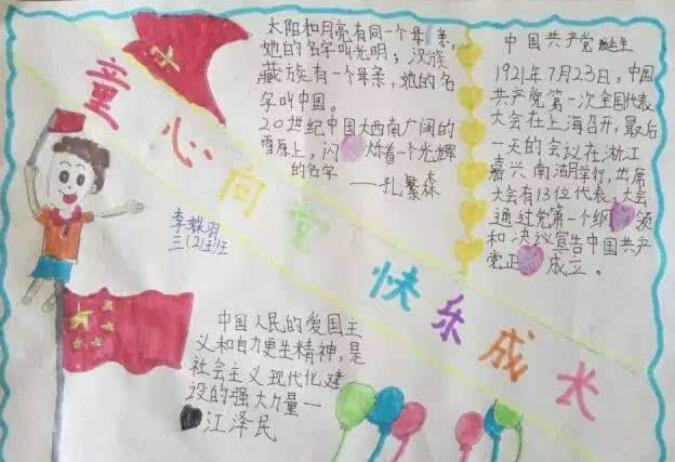 童心向党 快乐成长
太阳和月亮有同一个母亲,
她的名字叫光明;汉族
藏族有一个母亲,她的名
字叫中国。
20世纪中国大西南广阔的
雪原上,闪 炸着一个光辉
的名字
——孔繁森
中国共产党诞生
1921年7月23日,中国
共产党第一次全国代表
大会在上海召开,最后
一天的会议在浙江
嘉兴南湖举行,出席
大会有13位代表,大会
通过党第一个纲 领
和决议宣告中国共产
党正 成立。
三(2)班
中国人民的爱国主
义和自力更生精神,是
社会主义现代化建
设的强大力量—
江泽民